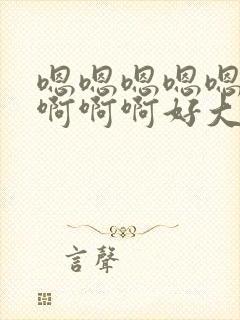 嗯嗯嗯嗯嗯
啊啊啊好大
言聲